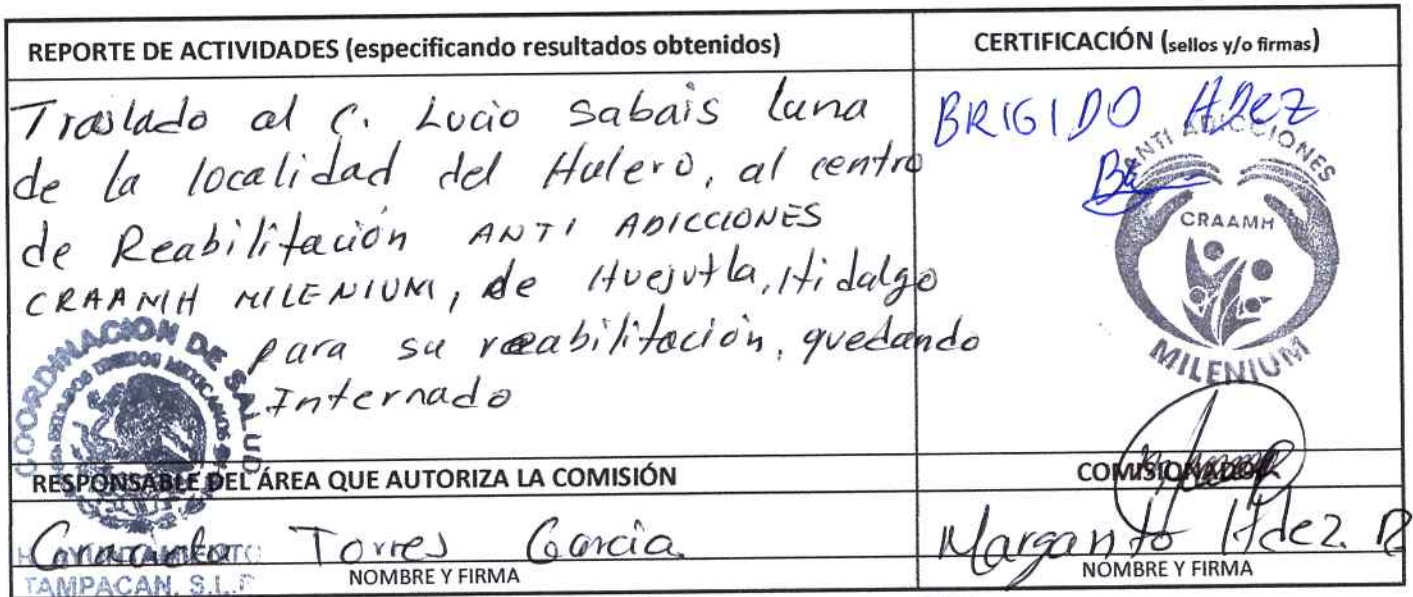 REPORTE DE ACTIVIDADES (especificando resultados obtenidos)
CERTIFICACIÓN (sellos y/o firmas)
Traslado al C. Lucio Sabais luna
de la localidad del Hulero, al centro
de Reabilitación ANTI ADICCIONES
CRAAMH MILENIUM, de Huejutla, Hidalgo
para su reabilitación, quedando
Internado
BRIGIDO HDEZ
ANTI ADICCIONES
CRAAMH
MILENIUM
COORDINACION DE SALUD
ESTADOS UNIDOS MEXICANOS
RESPONSABLE DEL ÁREA QUE AUTORIZA LA COMISIÓN
COMISIONADO
Torres García
H. AYUNTAMIENTO
TAMPACAN, S.L.P.
NOMBRE Y FIRMA
Margarito Hdez. R
NOMBRE Y FIRMA